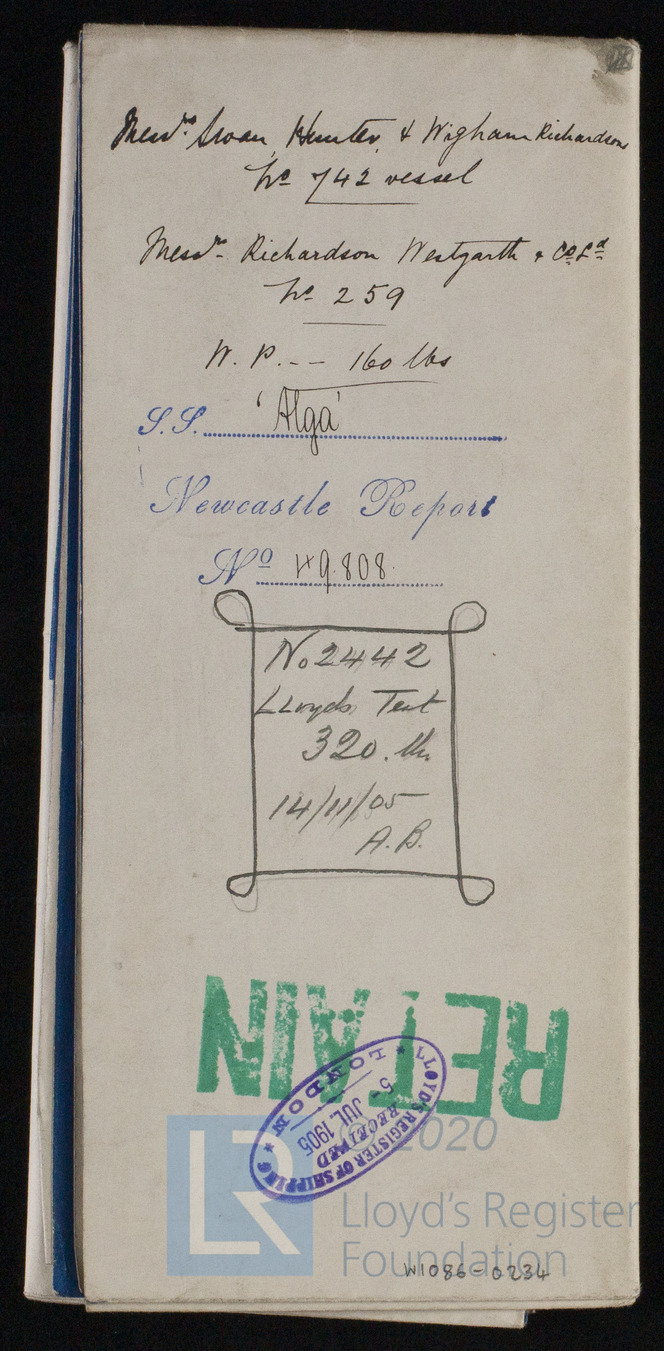 Messrs. Swan, Hunter, & Wigham Richardson
No 742 vessel
Messrs. Richardson Westgarth & Co Ld
No 259
W. P. -- 160 lbs
S.S. 'Alga'
Newcastle Report
No 49.808.
No 2442
LLoyds Test
320. lbs
14/11/05
A.B.
RETAIN
LLOYD'S REGISTER OF SHIPPING
RECEIVED
5- JUL 1905
★ LONDON ★
© 2020
LR
Lloyd's Register
Foundation
W1086-0234